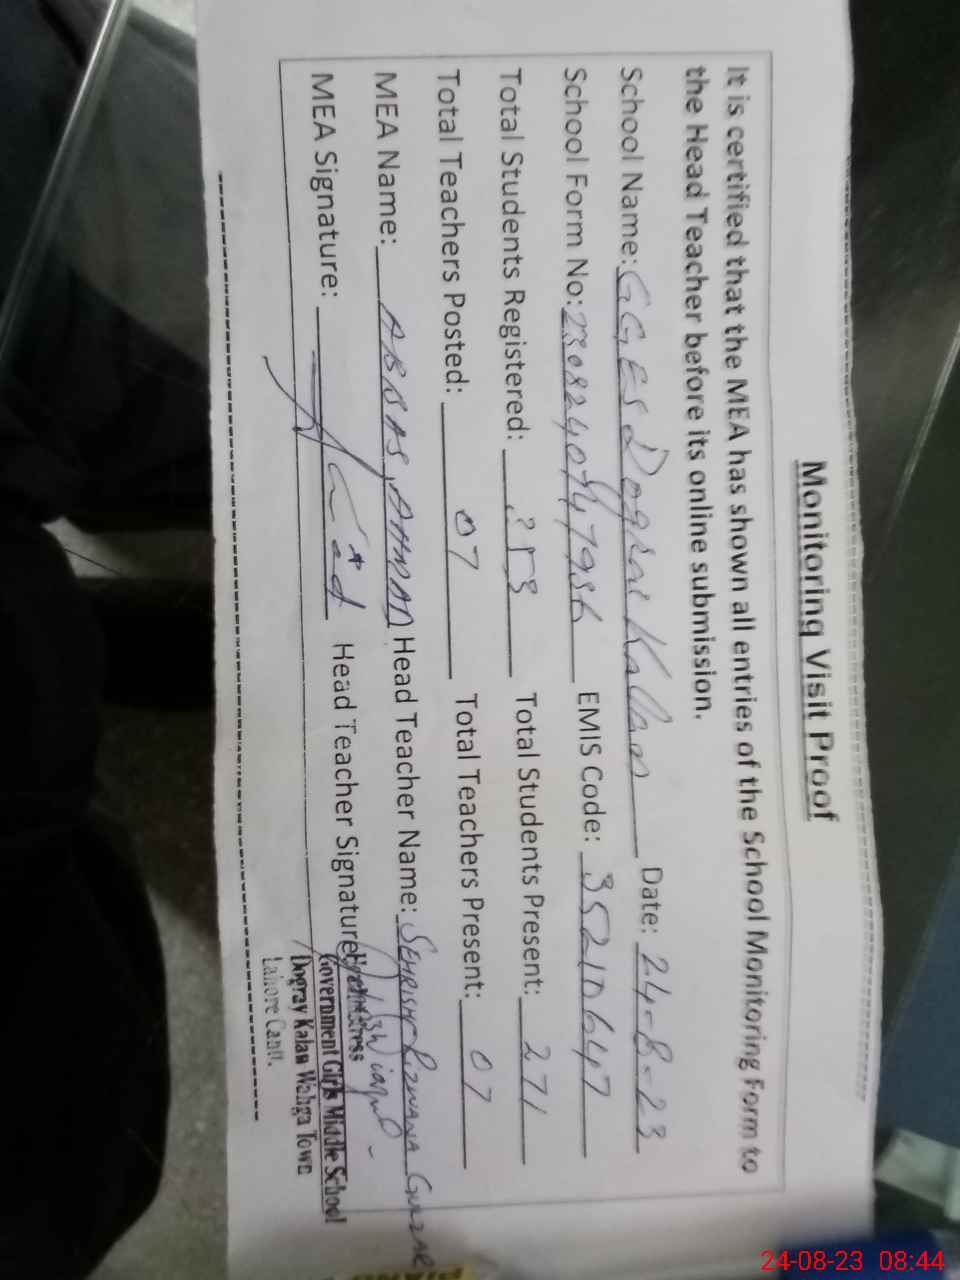 Monitoring Visit Proof
It is certified that the MEA has shown all entries of the School Monitoring Form to
the Head Teacher before its online submission.
School Name: GGES Dograi Kallan Date: 24-8-23
School Form No: EMIS Code: 35210647
Total Students Registered: Total Students Present: 271
Total Teachers Posted: 07 Total Teachers Present: 07
MEA Name: ABBAS AHMAD Head Teacher Name: SEHRISH RIZWANA GULZAR
MEA Signature: Head Teacher Signature:
Headmistress
Government Girls Middle School
Dogray Kalan Wahga Town
Lahore Cantt.
24-08-23 08:44